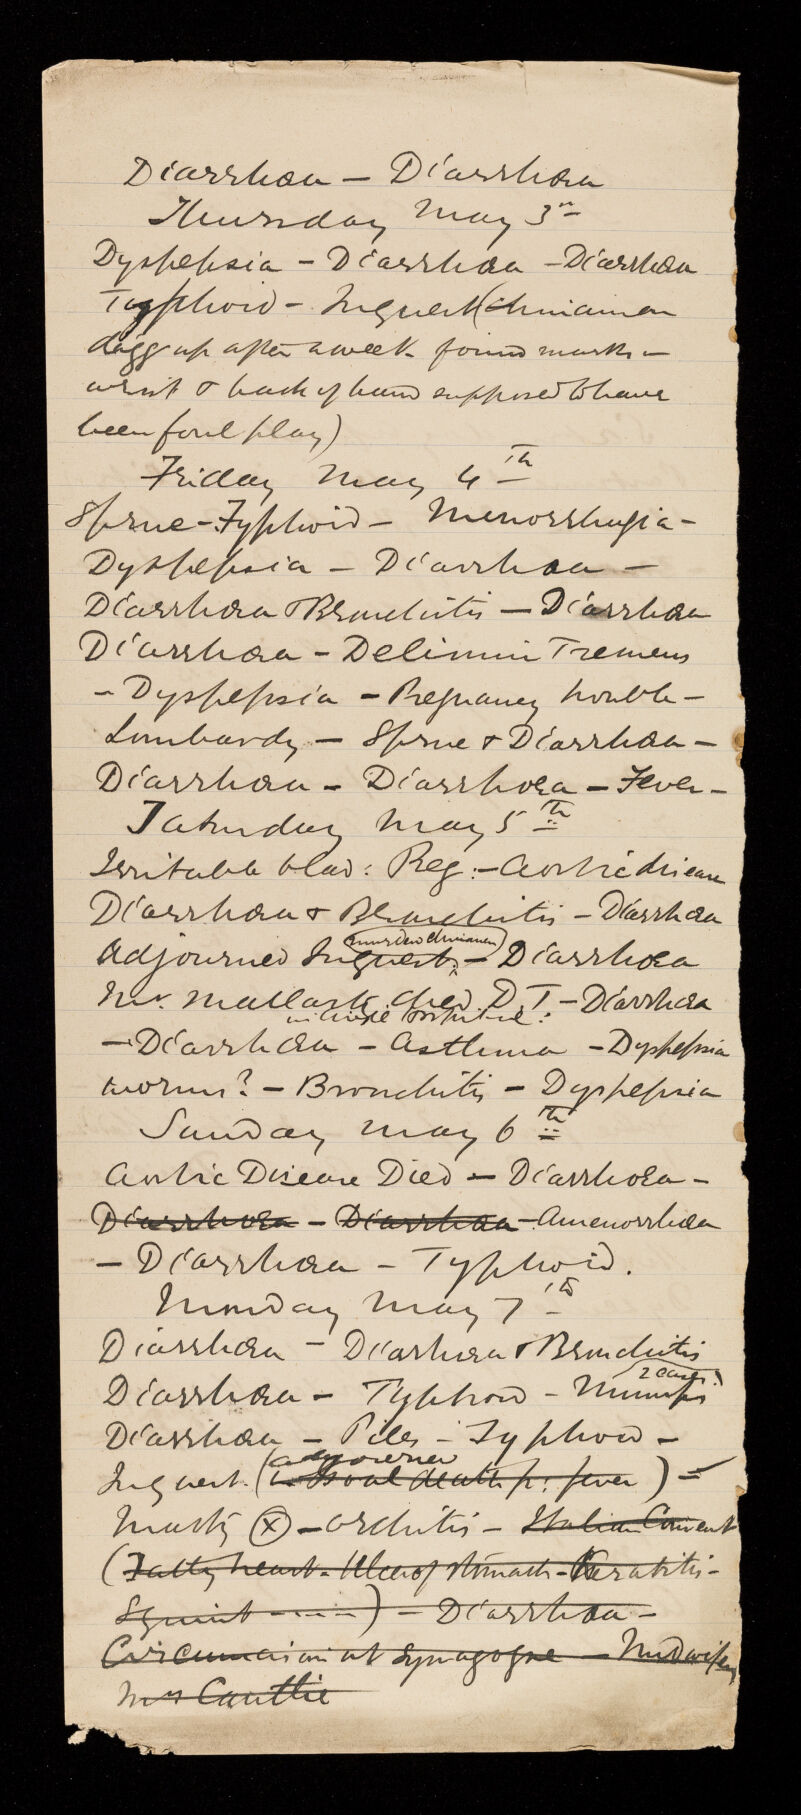 Diarrhœa – Diarrhœa
Thursday May 3rd
Dyspepsia – Diarrhœa – Diarrhœa
Typhoid – Inquest (chinaman
dugg up after a week found marks –
wrist & back of hand supposed to have
been foul play)
Friday May 4th
Sprue – Typhoid – Menorrhagia –
Dyspepsia – Diarrhœa –
Diarrhœa & Bronchitis – Diarrhœa
Diarrhœa – Delirium Tremens
– Dyspepsia – Pregnancy trouble –
Lombardy – Sprue & Diarrhœa –
Diarrhœa – Diarrhoea – Fever –
Saturday May 5th
Irritable blad: Preg: – Aortic disease
Diarrhœa & Bronchitis – Diarrhœa
(murder chinaman)
Adjourned Inquest – Diarrhoea
Mr. died D T – Diarrhœa
in
– Diarrhœa – Asthma – Dyspepsia
worms? – Bronchitis – Dyspepsia
Sunday May 6th
Aortic Disease Died – Diarrhoea –
Diarrhoea – Diarrhœa – Amenorrhœa
– Diarrhœa – Typhoid.
Monday May 7th
Diarrhœa – Diarrhœa & Bronchitis
2 cases
Diarrhœa – Typhoid – Mumps
Diarrhœa – Piles – Typhoid –
adjourned
Inquest. ( death fr: fever ) –
Marty (x) – orchitis – Italian Convent
(Fatty heart – Ulcer of stomach – Keratitis –
Squint - - - - ) – Diarrhœa –
Circumcision at Synagogue – Midwifery
Mrs Cantlie